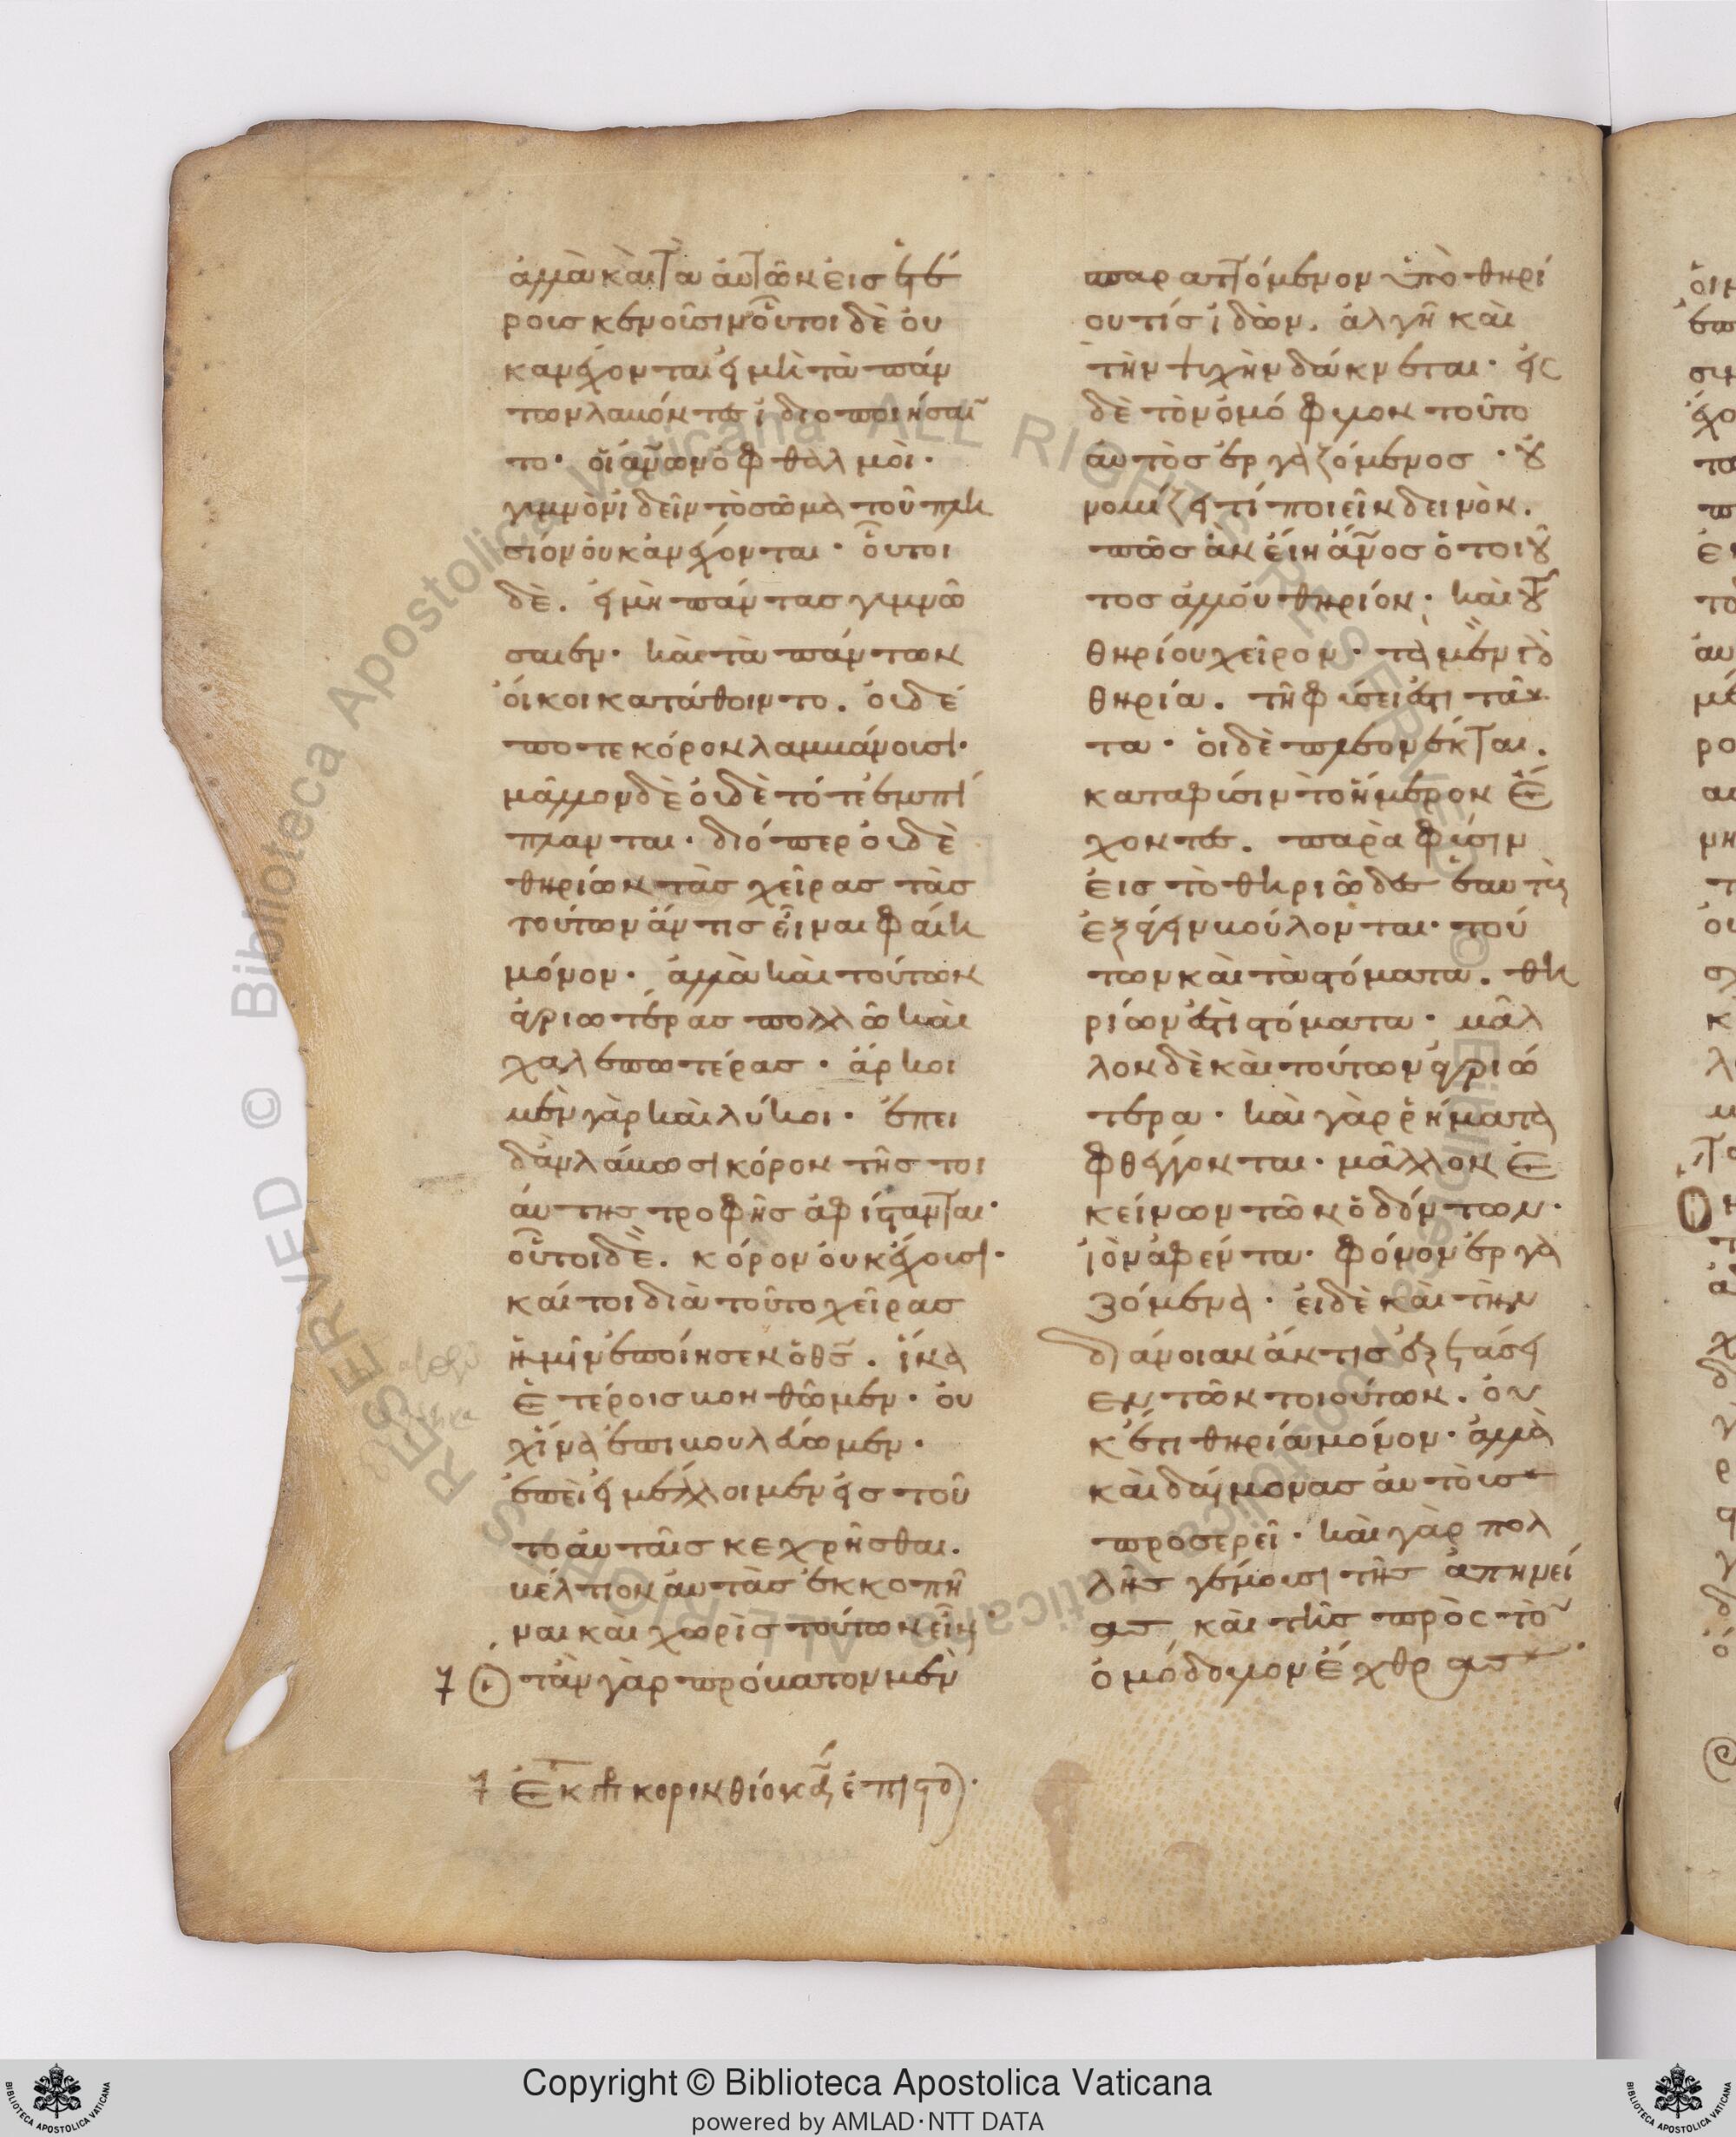 ἀλλὰ καὶ τὰ αὐτῶν εἰς ἑτέ
ροις κενοῦσιν οὗτοι δὲ οὐ
κ ἀνέχονται εἰ μὴ τὰ πάν
των λαβόντες ἰδιοποιήσαιν
το· οἱ ἄνων ὀφθαλμοὶ·
γυμνὸν ἰδεῖν τὸ σῶμα τοῦ πλη
σίον οὐκ ἀνέχονται· οὗτοι
δὲ. εἰ μὴ πάντας γυμνώ
σαιεν· καὶ τὰ πάντων
οἴκοι κατάθοιντο. οὐδέ
ποτε κόρον λαμβάνουσι·
μᾶλλον δὲ οὐδὲ τότε ἐμπί
πλανται· διόπερ οὐδὲ
θηρίων τὰς χεῖρας τὰς
τούτων ἄν τις εἶναι φαίη
μόνον· ἀλλὰ καὶ τούτων
ἀγριωτέρας πολλῶ καὶ
χαλεπωτέρας· ἄρκοι
μὲν γὰρ καὶ λύκοι· ἐπει
δὰν λάβωσι κόρον τῆς τοι
αύτης τροφῆς ἀφίστανται·
οὗτοι δὲ. κόρον οὐκ ἔχουσι·
καίτοι διὰ τοῦτο χεῖρας
ἡμῖν ἐποίησεν ὁ θς. ἵνα
ἑτέροις βοηθῶμεν· οὐ
χ ἵνα ἐπιβουλεύωμεν·
ἐπεὶ εἰ μέλλοιμεν εἰς τοῦ
το αὐταῖς κεχρῆσθαι.
βέλτιον αὐτὰς ἐκκοπῆ
ναι καὶ χωρὶς τούτων εἶναι
ἂν γὰρ πρόβατον μὲν
Ἐκ τῆς κορινθίους ἐπιστο
σπαραττόμενον ὑπὸ θηρί
ου τίς ἰδὼν. ἀλγῆ καὶ
τὴν ψυχὴν δάκνεται· εἰς
δὲ τὸν ὁμόφυλον τοῦτο
αὐτὸς ἐργαζόμενος· οὐ
νομίζει τί ποιεῖν δεινὸν.
πῶς ἂν εἴη ἄνος ὁ τοιοῦ
τος ἀλλ' οὐ θηρίον· καὶ τοῦ
θηρίου χεῖρον· τὰ μὲν γὰρ
θηρία. τῆ φύσει ἐστὶ ταῦ
τα· οἱ δὲ πλεονέκται.
κατὰ φύσιν τὸ ἥμερον ἔ
χοντες. παρὰ φύσιν
εἰς τὸ θηριῶδες ἑαυτοὺς
ἐξάγειν βούλονται· τού
των καὶ τὰ στόματα. θη
ρίων ἐστὶ στόματα· μᾶλ
λον δὲ καὶ τούτων ἀγριώ
τερα· καὶ γὰρ ῥήματα
φθέγγονται· μᾶλλον ἐ
κείνων τῶν ὀδόντων·
ἰὸν ἀφέντα· φόνον ἐργα
ζόμενα· εἰ δὲ καὶ τὴν
διάνοιαν ἄν τις ἐξετάσει
ἐν τῶν τοιούτων. οὐ
κ ἔτι θηρία μόνον· ἀλλὰ
καὶ δαίμονας αὐτοὺς
προσερεῖ· καὶ γὰρ πολ
λῆς γέμουσι τῆς ἀπηνεί
ας καὶ τῆς πρὸς τὸν
ὁμόδουλον ἔχθρας
Copyright © Biblioteca Apostolica Vaticana
powered by AMLAD·NTT DATA